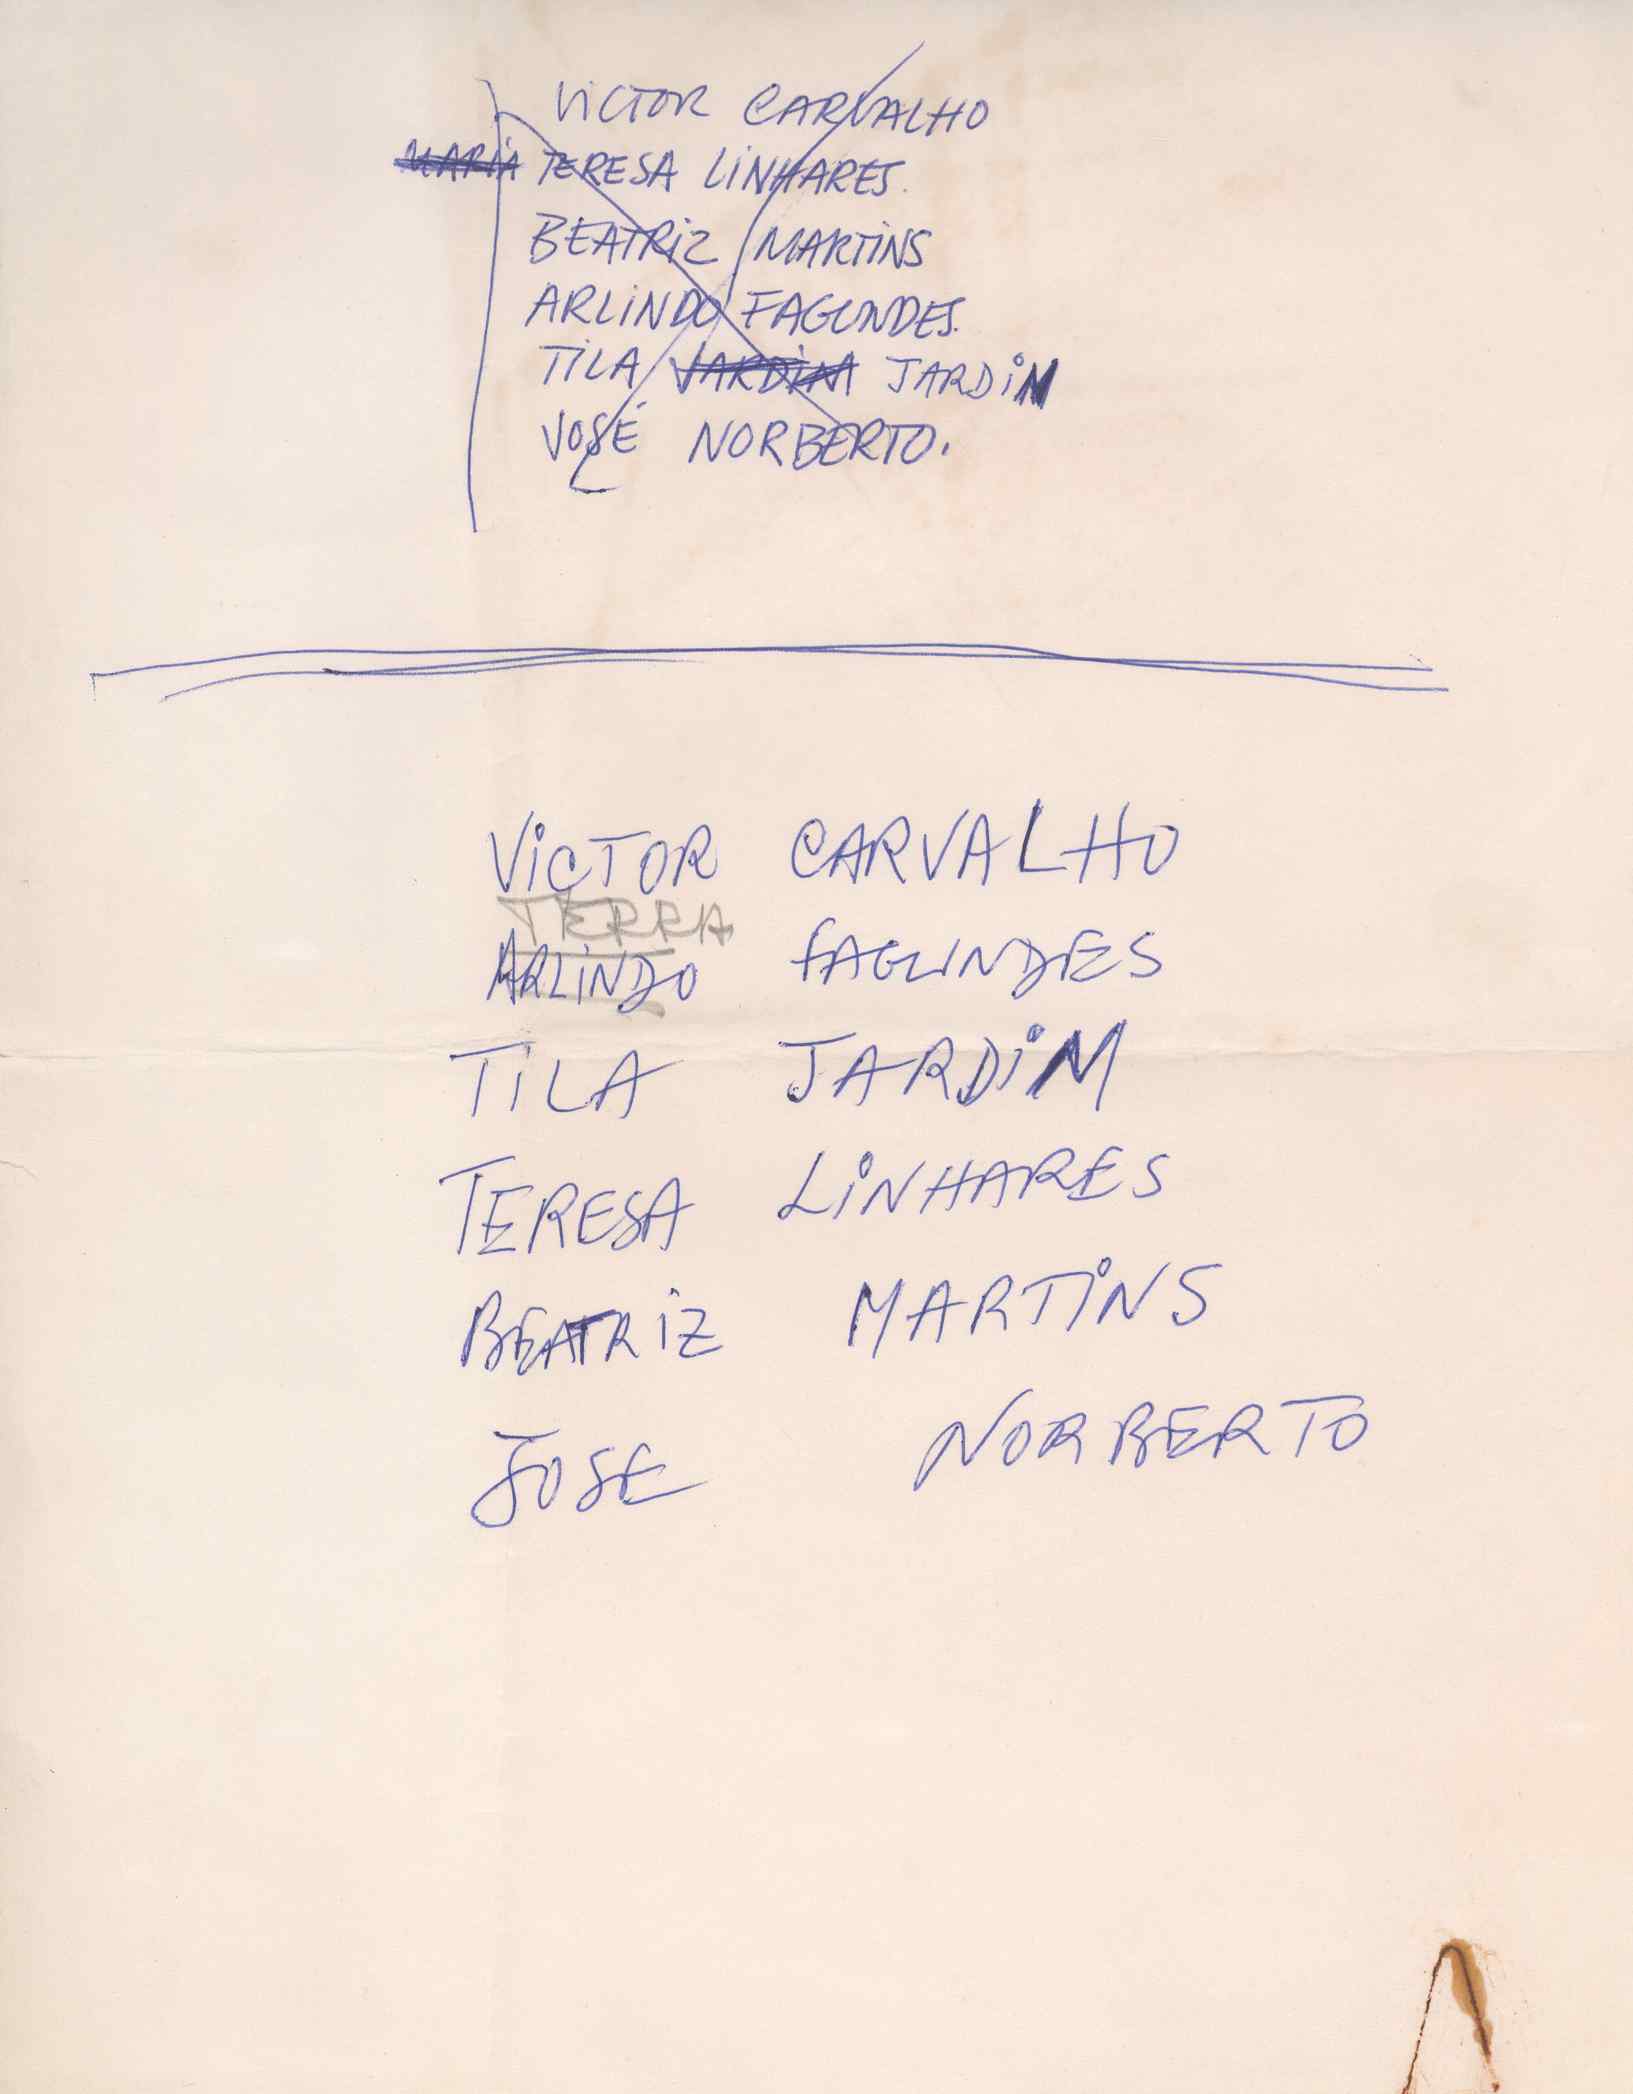 VICTOR CARVALHO
MARIA TERESA LINHARES.
BEATRIZ MARTINS
ARLINDO FAGUNDES.
TILA JARDIM JARDIM
JOSÉ NORBERTO.
VICTOR CARVALHO
TERRA
ARLINDO FAGUNDES
TILA JARDIM
TERESA LINHARES
BEATRIZ MARTINS
JOSE NORBERTO